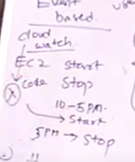 Event
based
cloud
watch.
EC2 start
Code Stop
10-5 PM.
Start
5PM → Stop